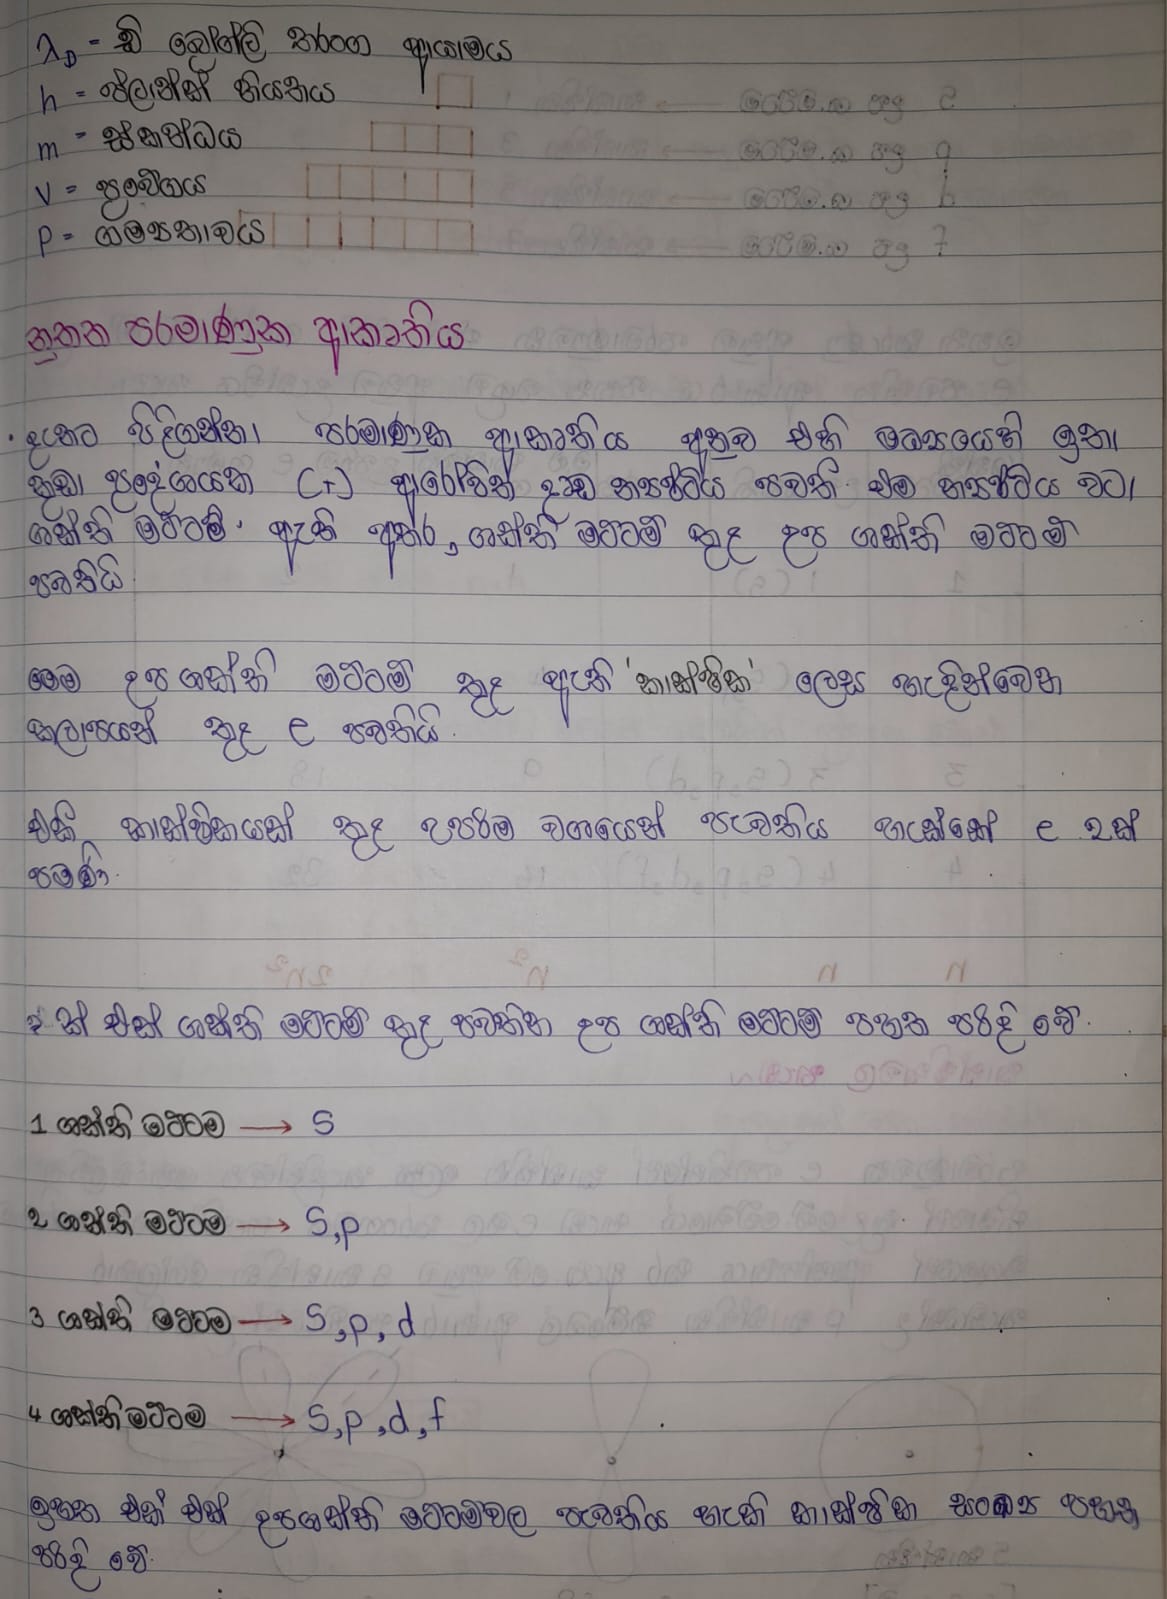 λD - ඩි බ්‍රෝග්ලි තරංග ආයාමය
h = ප්ලාන්ක් නියතය
m = ස්කන්ධය
v = ප්‍රවේගය
p = ගම්‍යතාවය
නූතන පරමාණුක ආකෘතිය
• දැනට පිළිගන්නා පරමාණුක ආකෘතිය අනුව එහි මධ්‍යයෙහි ඉතා
කුඩා ප්‍රදේශයක (+) ආරෝපිත දෘඩ න්‍යෂ්ටිය පවතී. එම න්‍යෂ්ටිය වටා
ශක්ති මට්ටම් ඇති අතර, ශක්ති මට්ටම් තුළ උප ශක්ති මට්ටම්
පවතියි
මෙම උප ශක්ති මට්ටම් තුළ ඇති 'කාක්ෂික' ලෙස හැඳින්වෙන
කලාපයන් තුළ e පවතියි.
එකි කාක්ෂිකයක් තුළ උපරිම වශයෙන් පැවතිය හැක්කේ e 2ක්
පමණි.
එක් එක් ශක්ති මට්ටම් තුළ පවතින උප ශක්ති මට්ටම් පහත පරිදි වේ.
1 ශක්ති මට්ටම → S
2 ශක්ති මට්ටම → S,p
3 ශක්ති මට්ටම → S,p,d
4 ශක්ති මට්ටම → S,p,d,f
ඉහත එක් එක් උපශක්ති මට්ටම්වල පැවතිය හැකි කාක්ෂික සංඛ්‍යා පහත
පරිදි වේ.